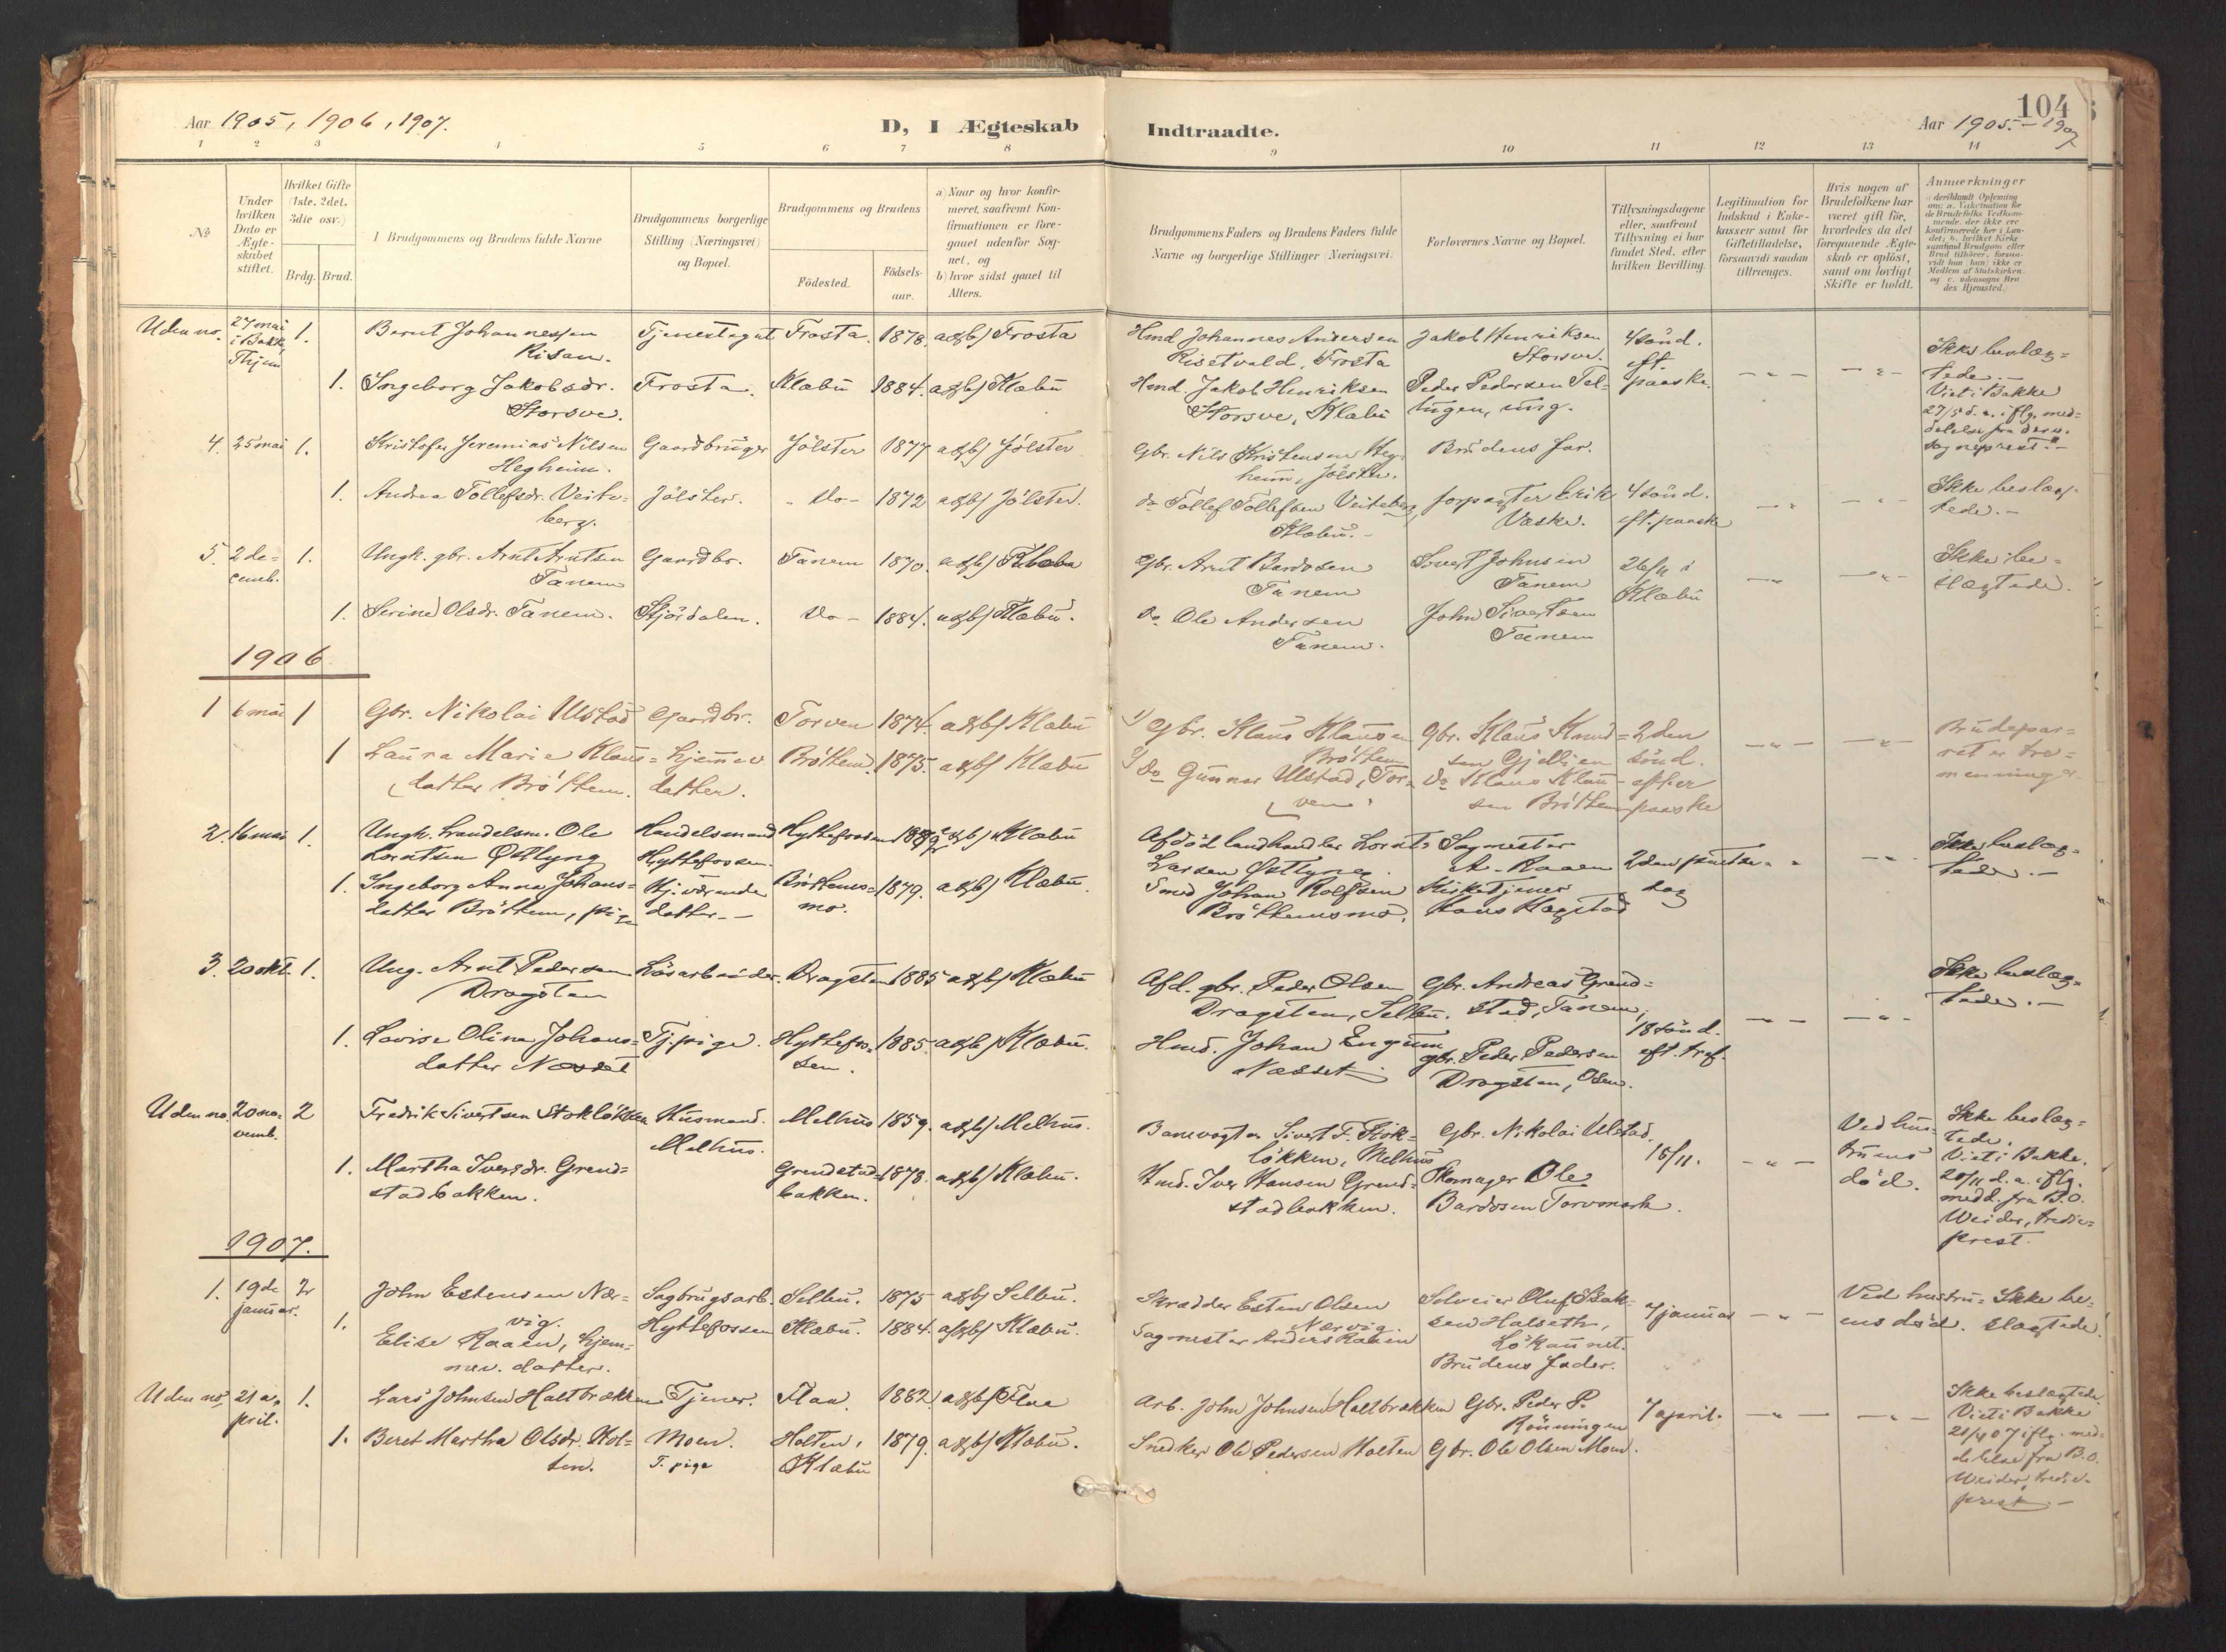 Aar 1905, 1906, 1907.
D, I Ægteskab
Indtraadte.
104
Aar 1905.-1907
1 2 3 4 5 6 7 8 9 10 11 12 13 14
No
Under hvilken Dato er Ægteskabet stiftet.
Hvilket Gifte (1ste, 2det, 3die osv.)
Brdg. Brud.
I Brudgommens og Brudens fulde Navne
Brudgommens borgerlige Stilling (Næringsvei) og Bopæl.
Brudgommens og Brudens
Fødested.
Fødselsaar.
a) Naar og hvor konfirmeret, saafremt Konfirmationen er foregaaet udenfor Sognet, og
b) hvor sidst gaaet til Alters.
Brudgommens Faders og Brudens Faders fulde Navne og borgerlige Stillinger (Næringsvei)
Forlovernes Navne og Bopæl.
Tillysningsdagene eller, saafremt Tillysning ei har fundet Sted, efter hvilken Bevilling.
Legitimation for Indskud i Enkekassen samt for Giftetilladelse, forsaavidt saadan tiltrænges.
Hvis nogen af Brudefolkene har været gift før, hvorledes da det foregaaende Ægteskab er opløst, samt om lovligt Skifte er holdt.
Anmærkninger
Uden no. 27 mai i Bakke, Thjem 1. Bernt Johannessen Risan. Tjenestegut Frosta. 1878. a&b) Frosta Hmd Johannes Andersen Risetvald, Frosta Jakob Henriksen Storsve. 4 sönd. eft. paaske. Ikke beslæg=
tede.-
1. Ingeborg Jakobsdr. Storsve. Frosta. Klæbu 1884. a&b) Klæbu Hmd. Jakob Henriksen Storsve, Klæbu Peder Pedersen Tellugen, ung. Viet i Bakke 27/5 d. a. iflg. meddelelse fra ders. sogneprest.-
4. 25 mai 1. Kristofer Jeremias Nilsen Hegheim. Gaardbruger Jölster 1877 a&b) Jölster Gbr. Nils Kristensen Hegheim, Jölster. Brudens far. 4 sönd. eft. paaske
1. Andrea Tollefsdr. Veiteberg. Jölster. -Do- 1872 a&b) Jölster. do Tollef Tollefsen Veiteberg, Klæbu.- forpagter Erik Vaske. Ikke beslægtede.-
5. 2 december. 1. Ungk. gbr. Arnt Arntsen Tanem Gaardbr. Tanem 1870. a&b) Klæbu Gbr. Arnt Bardosen Tanem Sivert Johnsen Tanem 26/11 i Klæbu Ikke beslægtede.
1. Serine Olsdr. Tanem. Stjördalen. Do- 1884. a&b) Klæbu. Do Ole Andersen Tanem. John Sivertsen Tanem
1906
1 6 mai 1 Gbr. Nikolai Ulstad Gaardbr. Torven 1874. a&b) Klæbu 1) Gbr. Klaus Klausen Bröttem Gbr. Klaus Knudsen Gjellien 2den sönd. efter paaske Brudeparret er tremenninger.
1 Laura Marie Klausdatter Bröttem. Hjemmev. datter. Bröttem. 1875. a&b) Klæbu 2) Do Gunnar Ulstad, Torven Do Klaus Klausen Bröttem
2. 16 mai 1. Ungk. handelsm. Ole Lorntsen Östlyng Handelsmand Hyttefossen. Hyttefossen a&b) Klæbu Afdöd landhandler Lornts Larsen Östlyng. Sagmester A. Raaen 2den pintsedag Ikke beslægtede.-
1. Ingeborg Anna Johansdatter Bröttem, pige Hj. værende datter.- Bröttemsmo. 1879. a&b) Klæbu. Smed Johan Rolfsen Bröttemsmo. Kirketjener Hans Hagstad
3. 20 okt. 1. Ung. Arnt Pedersen Dragsten Lösarbeider. Dragsten 1885 a&b) Klæbu Afd. gbr. Peder Olsen Dragsten, Selbu. Gbr. Andreas Grendstad, Tanem, 18 sönd. eft. tref. Ikke beslægtede.-
1. Lovise Oline Johansdatter Næsset Tj. pige. Hyttefossen. 1885. a&b) Klæbu. Hmd. Johan Engum Næsset gbr. Peder Pedersen Dragsten, Osen.
Uden no. 20 novemb. 2 Fredrik Sivertsen Stoklökken Husmand. Melhus. Melhus 1859. a&b) Melhus. Banevogter Sivert F. Stoklökken, Melhus Gbr. Nikolai Ulstad. 18/11. Ved hustruens död. Ikke beslægtede. Viet i Bakke. 20/11 d. a. iflg. medd. fra B.O. Weider, tredieprest.
1. Martha Iversdr. Grendstadbakken. Grendstadbakken. 1878. a&b) Klæbu. Hmd. Iver Hansen Grendstadbakken. Skomager Ole Bardosen Torvmark.
1907.
1. 19de januar. 2 John Estensen Nervig. Sagbrugsarb. Hyttefossen Selbu. 1875 a&b) Selbu. Skrædder Esten Olsen Nervig. Selveier Oluf Isaksen Halseth, Lökaunet. 7 januar Ved hustruens död. Ikke beslægtede.
1. Elise Raaen, hjemmev. datter. Klæbu. 1884. a&b) Klæbu. Sagmester Anders Raaen Brudens fader.
Uden no. 21 april. 1. Lars Johnsen Haltbrækken Tjener. Flaa. 1882 a&b) Flaa Arb. John Johnsen Haltbrækken Gbr. Peder P. Rönningen 7 april. Ikke beslægtede. Viet i Bakke 21/4 07 iflg. meddelelse fra B.O. Weider, tredieprest.-
1. Beret Martha Olsdr. Holten. Moen. T. pige Holten, Klæbu 1879. a&b) Klæbu. Snedker Ole Pedersen Holten Gbr. Ole Olsen Moen.